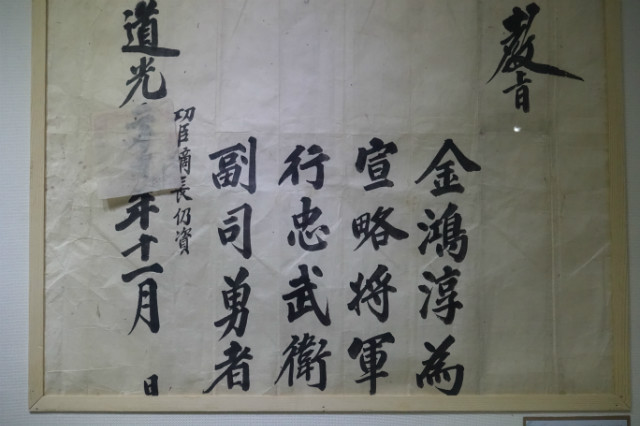 敎旨
金鴻淳為
宣略將軍
行忠武衛
副司勇者
功臣啇長仍資
道光年十一月 日